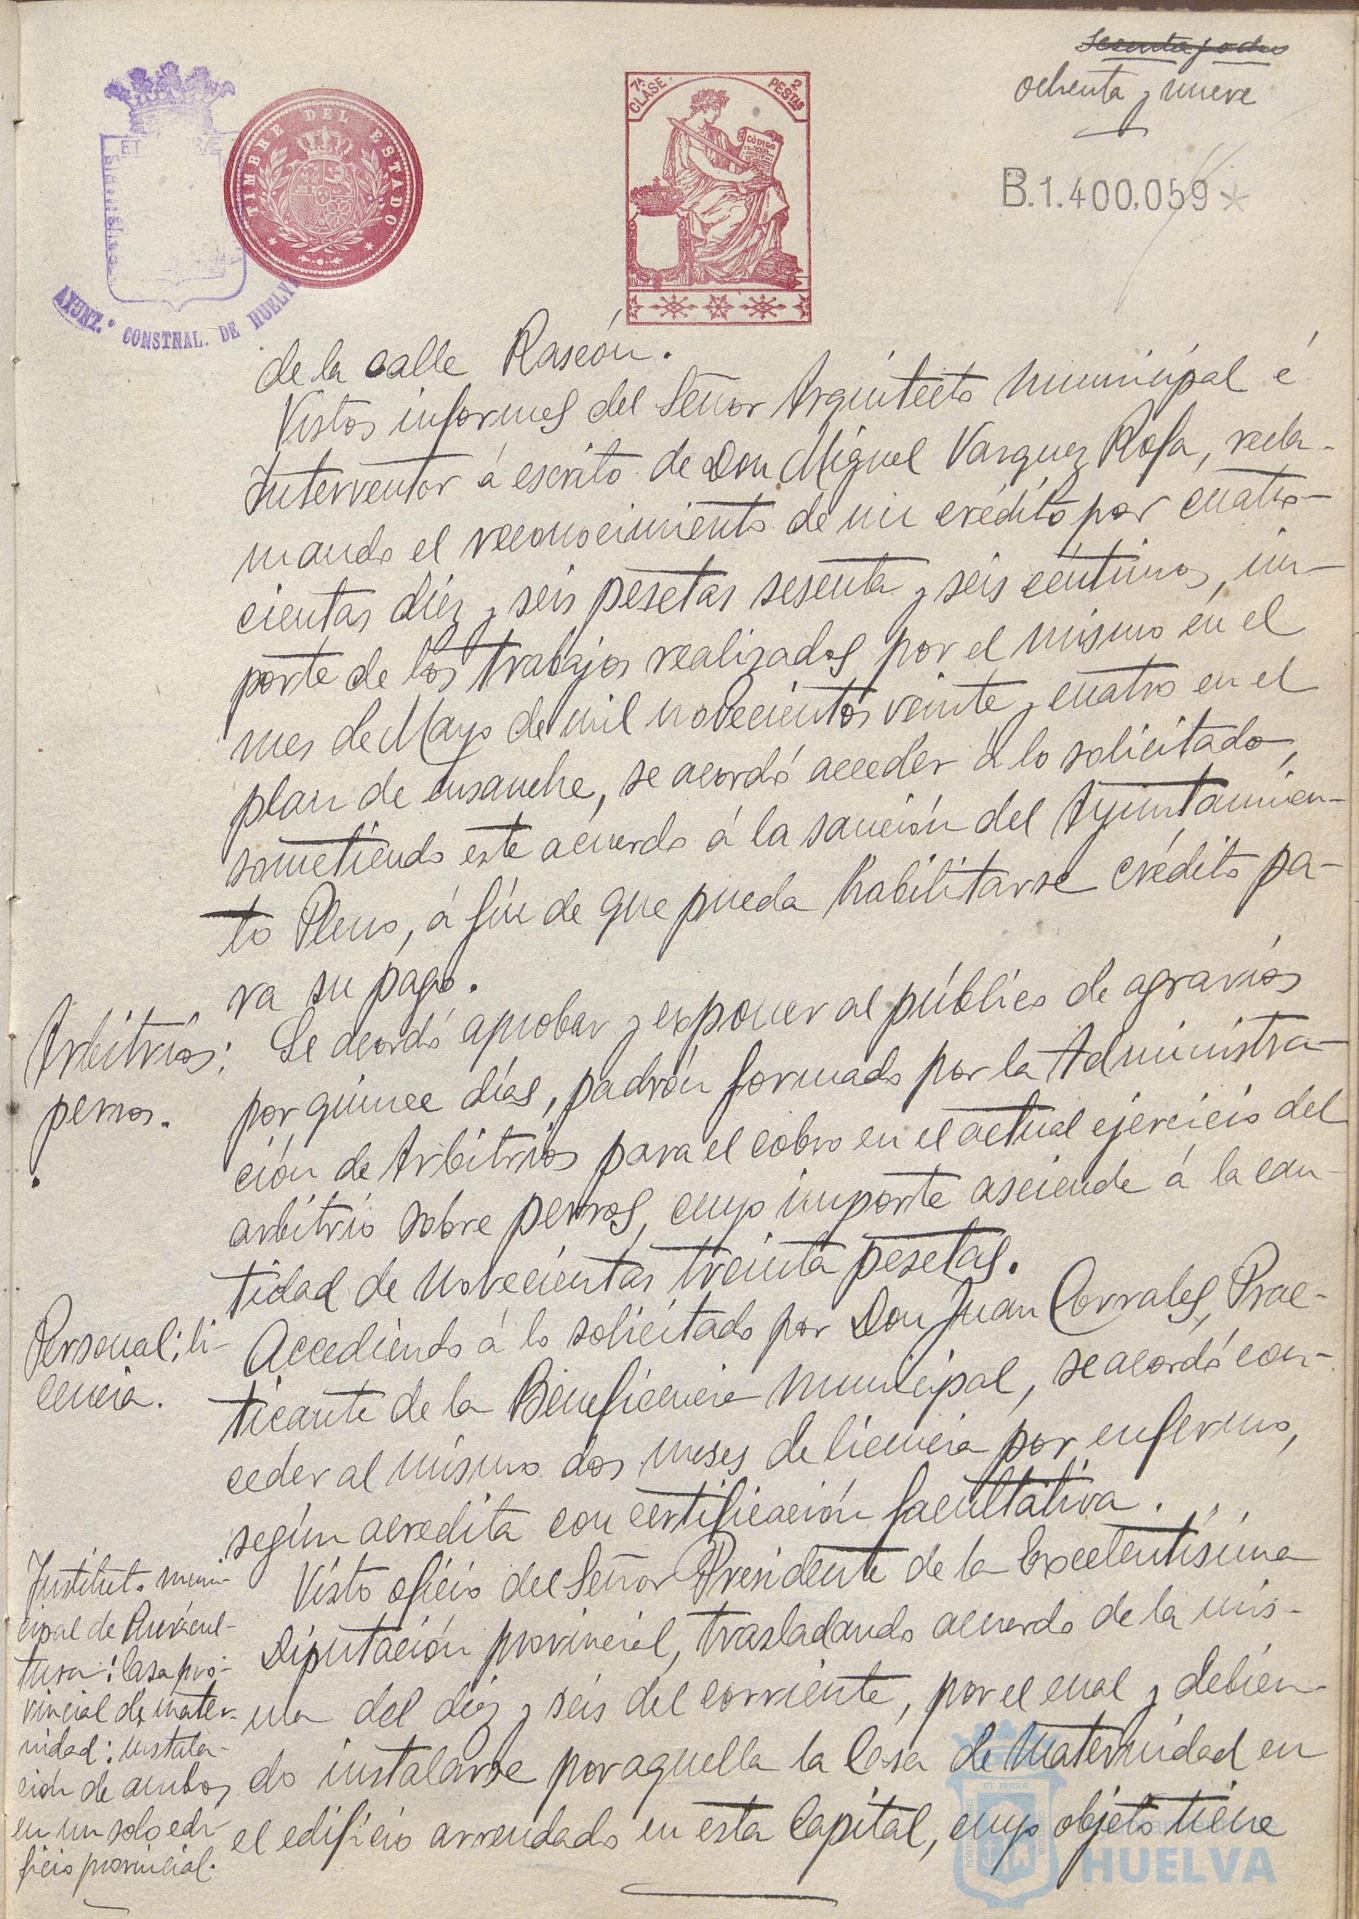 ochenta y nueve
TIMBRE DEL ESTADO
7ª CLASE. 2 PESTAS
CÓDIGO
B.1.400.059*
AYUNT.º CONSTNAL. DE HUELVA
de la calle Rascón.
Vistos informes del Señor Arquitecto Municipal é
Interventor á escrito de Don Miguel Vazquez Rofa, recla-
mando el reconocimiento de un crédito por cuatro-
cientas diez y seis pesetas sesenta y seis céntimos, im-
porte de los trabajos realizados por el mismo en el
mes de Mayo de mil novecientos veinte y cuatro en el
plan de ensanche, se acordó acceder á lo solicitado,
sometiendo este acuerdo á la sanción del Ayuntamien-
to Pleno, á fin de que pueda habilitarse crédito pa-
ra su pago.
Arbitrios:
perros.
Se acordó aprobar y exponer al público de agravios
por quince días, padrón formado por la Administra-
ción de Arbitrios para el cobro en el actual ejercicio del
arbitrio sobre perros, cuyo importe asciende á la can-
tidad de novecientas treinta pesetas.
Personal: li-
cencia.
Accediendo á lo solicitado por Don Juan Corrales, Prac-
ticante de la Beneficencia Municipal, se acordó con-
ceder al mismo dos meses de licencia por enfermo,
según acredita con certificación facultativa.
Institut. muni-
cipal de Puericul-
tura: Casa pro-
vincial de mater-
nidad: instala-
ción de ambos
en un solo edi-
ficio provincial.
Visto oficio del Señor Presidente de la Excelentísima
Diputación provincial, trasladando acuerdo de la mis-
ma del diez y seis del corriente, por el cual y debien-
do instalarse por aquella la Casa de Maternidad en
el edificio arrendado en esta Capital, cuyo objeto tiene
HUELVA